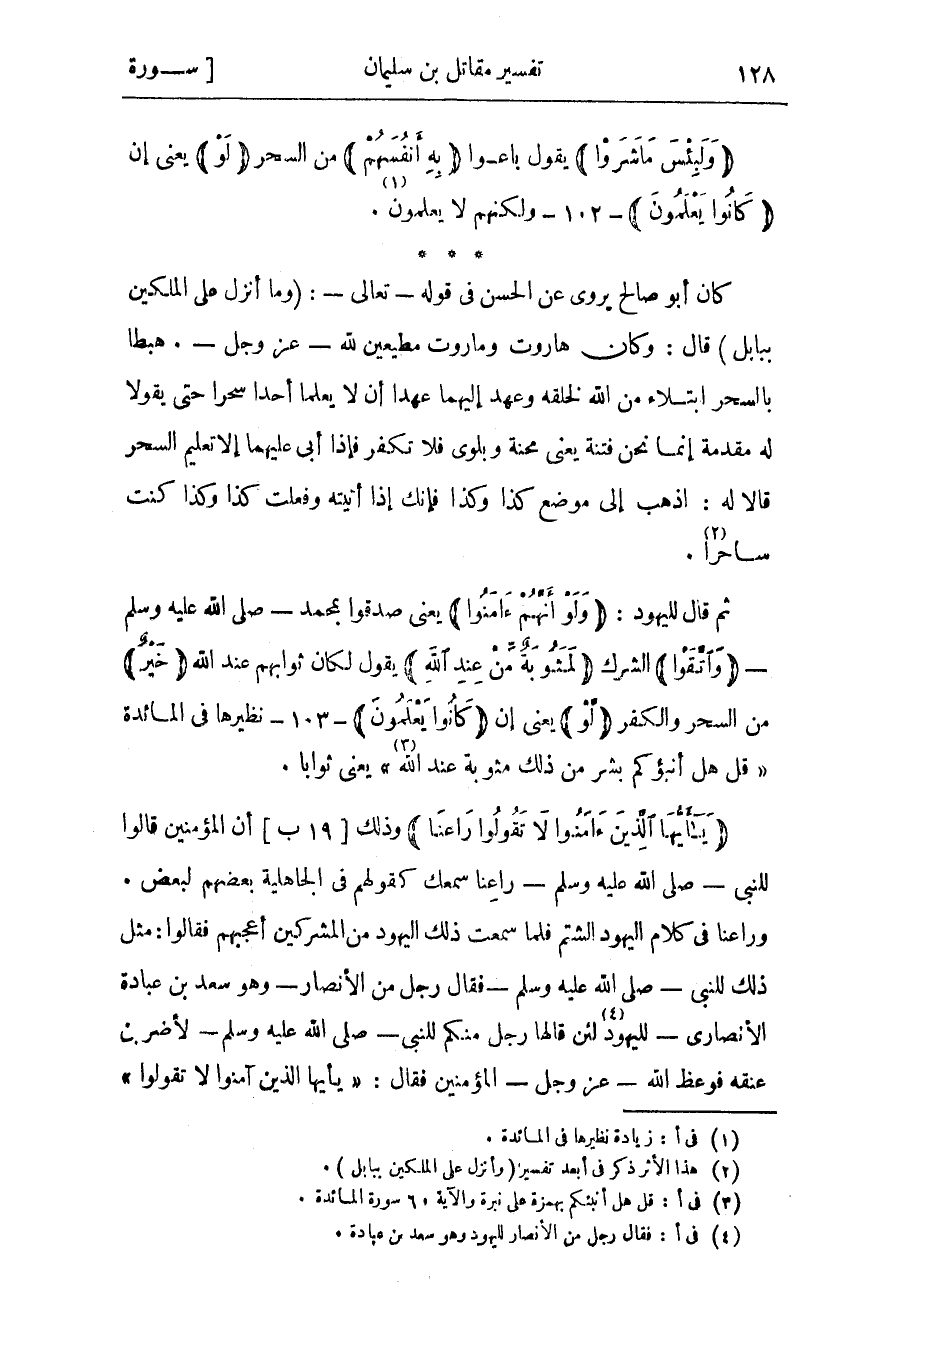 ١٢٨ تفسير مقاتل بن سليمان [ ســورة
﴿ وَلَبِئْسَ مَا شَرَوْا ﴾ يقول باعوا ﴿ بِهِ أَنفُسَهُمْ ﴾ من السحر ﴿ لَوْ ﴾ يعنى إن
﴿ كَانُوا يَعْلَمُونَ ﴾ – ١٠٢ – ولكنهم لا يعلمون (١) .
* * *
كان أبو صالح يروى عن الحسن فى قوله – تعالى – : (وما أنزل على الملكين
ببابل ) قال : وكان هاروت وماروت مطيعين لله – عز وجل – . هبطا
بالسحر ابتـلاء من الله لخلقه وعهد إليهما عهدا أن لا يعلما أحدا سحرا حتى يقولا
له مقدمة إنمـا نحن فتنة يعنى محنة وبلوى فلا تكفر فإذا أبى عليهما إلا تعليم السحر
قالا له : اذهب إلى موضع كذا وكذا فإنك إذا أتيته وفعلت كذا وكذا كنت
ســاحرا (٢) .
ثم قال لليهود : ﴿ وَلَوْ أَنَّهُمْ ءَامَنُوا ﴾ يعنى صدقوا بمحمد – صلى الله عليه وسلم
– ﴿ وَٱتَّقَوْا ﴾ الشرك ﴿ لَمَثُوبَةٌ مِّنْ عِندِ ٱللَّهِ ﴾ يقول لكان ثوابهم عند الله ﴿ خَيْرٌ ﴾
من السحر والكفر ﴿ لَّوْ ﴾ يعنى إن ﴿ كَانُوا يَعْلَمُونَ ﴾ – ١٠٣ – نظيرها فى المـائدة
« قل هل أنبؤكم بشر من ذلك مثوبة عند الله (٣) » يعنى ثوابا .
﴿ يَـٰٓأَيُّهَا ٱلَّذِينَ ءَامَنُوا لَا تَقُولُوا رَاعِنَا ﴾ وذلك [ ١٩ ب ] أن المؤمنين قالوا
للنبى – صلى الله عليه وسلم – راعنا سمعك كقولهم فى الجاهلية بعضهم لبعض .
وراعنا فى كلام اليهود الشتم فلما سمعت ذلك اليهود من المشركين أعجبهم فقالوا : مثل
ذلك للنبى – صلى الله عليه وسلم – فقال رجل من الأنصار – وهو سعد بن عبادة
الأنصارى – لليهود (٤) لئن قالها رجل منكم للنبى – صلى الله عليه وسلم – لأضربن
عنقه فوعظ الله – عز وجل – المؤمنين فقال : « يأيها الذين آمنوا لا تقولوا »
(١) فى أ : زيادة نظيرها فى المـائدة .
(٢) هذا الأثر ذكر فى أبعد تفسير ( وأنزل على الملكين ببابل ) .
(٣) فى أ : قل هل أنبئكم بهمزة على نبرة والآية ٦٠ سورة المـائدة .
(٤) فى أ : فقال رجل من الأنصار لليهود وهو سعد بن عبادة .